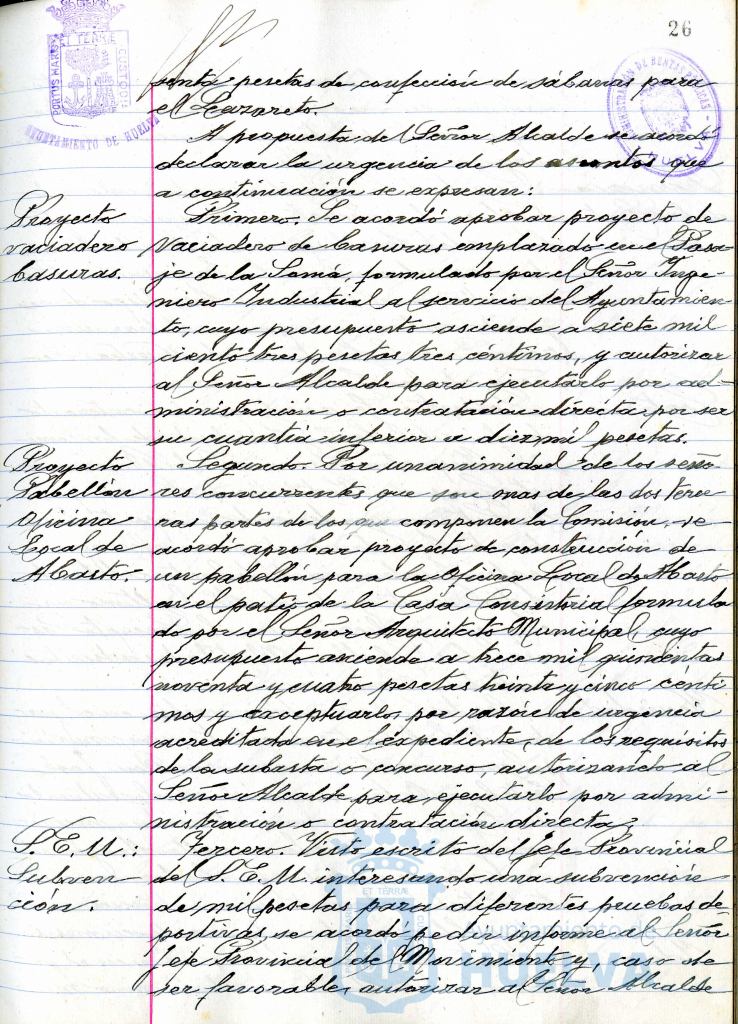 26
PORTUS MARIS ET TERRÆ CUSTODIA
AYUNTAMIENTO DE HUELVA
ADMINISTRACION DE RENTAS PUBLICAS
senta pesetas de confección de sábanas para
el Lazareto.
A propuesta del Señor Alcalde se acordó
declarar la urgencia de los asuntos que
a continuación se expresan:
Proyecto
vaciadero
basuras.
Primero. Se acordó aprobar proyecto de
vaciadero de basuras emplazado en el Pasa-
je de la Soma, formulado por el Señor Inge-
niero Industrial al servicio del Ayuntamien-
to, cuyo presupuesto asciende a siete mil
ciento tres pesetas tres céntimos, y autorizar
al Señor Alcalde para ejecutarlo por ad-
ministración o contratación directa por ser
su cuantía inferior a diez mil pesetas.
Proyecto
Pabellón
Oficina
Local de
Abasto.
Segundo. Por unanimidad de los seño-
res concurrentes que son mas de las dos terce-
ras partes de los que componen la Comisión, se
acordó aprobar proyecto de construcción de
un pabellón para la Oficina Local de Abasto
en el patio de la Casa Consistorial formula
do por el Señor Arquitecto Municipal, cuyo
presupuesto asciende a trece mil quinientas
noventa y cuatro pesetas treinta y cinco cénti-
mos y exceptuarlo, por razón de urgencia
acreditada en el expediente, de los requisitos
de la subasta o concurso, autorizando al
Señor Alcalde para ejecutarlo por admi-
nistración o contratación directa;
S. E. U.:
Subven-
ción.
Tercero. Visto escrito del Jefe Provincial
del S. E. U. interesando una subvención
de mil pesetas para diferentes pruebas de-
portivas, se acordó pedir informe al Señor
Jefe Provincial del Movimiento y, caso de
ser favorable, autorizar al Señor Alcalde
ET TERRÆ
Ayuntamiento de
HUELVA